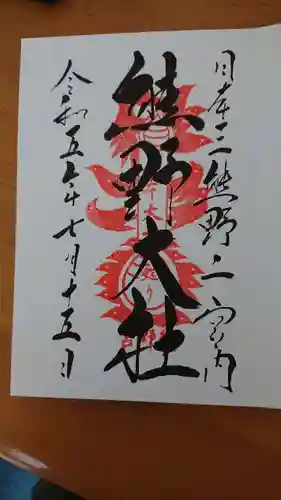 日本三熊野之一宮内
熊野大社
令和五年七月十五日